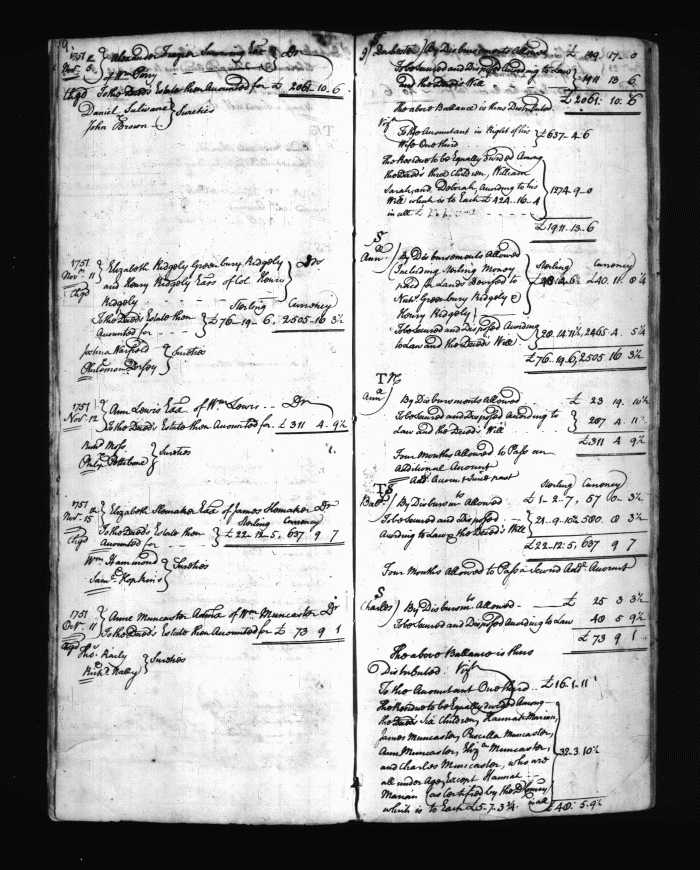 9
1751
Nov.r 5
Chgd
Alexander Frazier Surviving Exr. Dr
of Wm Perry
To the Deceds Estate then Amounted for £ 2061. 10. 6
Daniel Sulivane
John Brown
Sureties
1751
Nov.r 11
Chgd
Elizabeth Ridgely Greenbury Ridgely
and Henry Ridgely Exrs of Col. Henry
Ridgely
Dr
Sterling Currency
To the Deceds Estate then
Amounted for
£ 76-19-6, 2505-16 3½
Joshua Warfield
Philemon Dorsey
Sureties
1751
Nov.r 12
Ann Lewis Exa. of Wm Lewis Dr
To the Deceds Estate then Amounted for £ 311 4 9½
Sureties
1751
Nov.r 15
Chgd
Elizabeth Slemaker Exa of James Slemaker Dr
Sterling Currency
To the Deceds Estate then
Amounted for
£ 22-12-5, 637 9 7
Wm Hammond
Saml. Hopkins
Sureties
1751
Oct.r 11
Chgd
Anne Muncaster Admx of Wm Muncaster Dr
To the Deceds Estate then Amounted for £ 73 9 1
Thos.
Richd.
Sureties
9
Dorchester
By Disbursements Allowed £ 149 17 0
To be secured and Disposed According to Law
and the Deceds Will
1911 13 6
£ 2061. 10. 6
The above Ballance is thus Distributed
Vizt
To the Accountant in Right of his
Wife One third
£ 637-4-6
The Residue to be Equally divided Among
the Deceds three Children, William
Sarah, and Deborah, According to his
Will which is to Each £ 424-16-4
in all £
1274-9-0
£ 1911-13-6
S
Ann
By Disbursements Allowed
Including Sterling Money
paid for Lands Devised to
Greenbury Ridgely &
Henry Ridgely
Sterling Currency
£40. 11. 8¼
To be secured and Disposed According
to Law and the Deceds Will
2465 4 5½
£ 76. 19. 6, 2505 16 3½
Ann
By Disbursements Allowed £ 23 19 10½
To be secured and Disposed According to
Law and the Deceds Will
287 4 11
£ 311 4 9½
Four Months Allowed to Pass an
Additional Amount
Sterling Currency
By Disbursmts Allowed £ 1-2-7, 57 0 3½
To be secured and Disposed
According to Law & the Deceds Will
21-9-10, 580 8 3½
£ 22-12-5, 637 9 7
Four Months Allowed to Pass a Second Addl. Amount
S
Charles
By Disbursmts Allowed £ 25 3 3½
To be secured and Disposed According to Law 48 5 9½
£ 73 9 1
The above Ballance is thus
Distributed Vizt
To the Accountant One third £ 16. 1. 11
The Residue to be Equally divided Among
the Deceds Six Children, Hannah Marian,
James Muncaster, Priscilla Muncaster,
Ann Muncaster, Eliza Muncaster,
and Charles Muncaster, who are
all under Age, Except Hannah
Marian (as Certified by the Deputy)
which is to Each £ 5. 7. 3¾ in all
32. 3. 10½
£ 48. 5. 9½